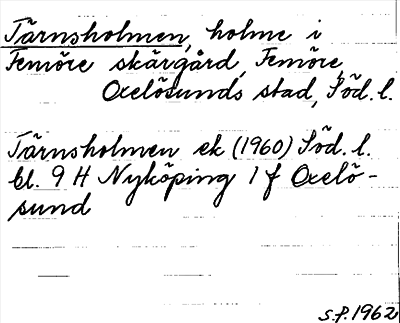 Tärnsholmen, holme i
Femöre skärgård, Femöre,
Oxelösunds stad, Söd. l.
Tärnsholmen ek (1960) Söd. l.
bl. 9 H Nyköping 1 f Oxelö-
sund
S.P. 1962